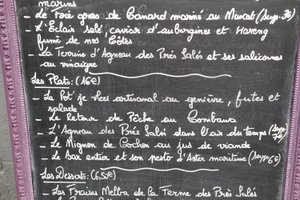 marins
_ Le Foie gras de Canard mariné au Muscat (Supp. 3€)
_ L'Eclair salé, caviar d'aubergines et Hareng
fumé de nos Côtes
_ La Terrine d'Agneau des Prés Salés et ses salicornes
au vinaigre
Les Plats: (16€)
_ Le Pot j'vleesch artisanal au genièvre, frites et
salade
_ Le Retour de Pêche au Combava
_ L'Agneau des Prés Salés dans l'air du temps (Supp
_ Le Mignon de Cochon au jus de viande
_ Le Bar entier et son pesto d'Aster maritime (Supp 6€)
Les Desserts: (6,50€)
_ Les Fraises Melba de la Ferme des Prés Salés